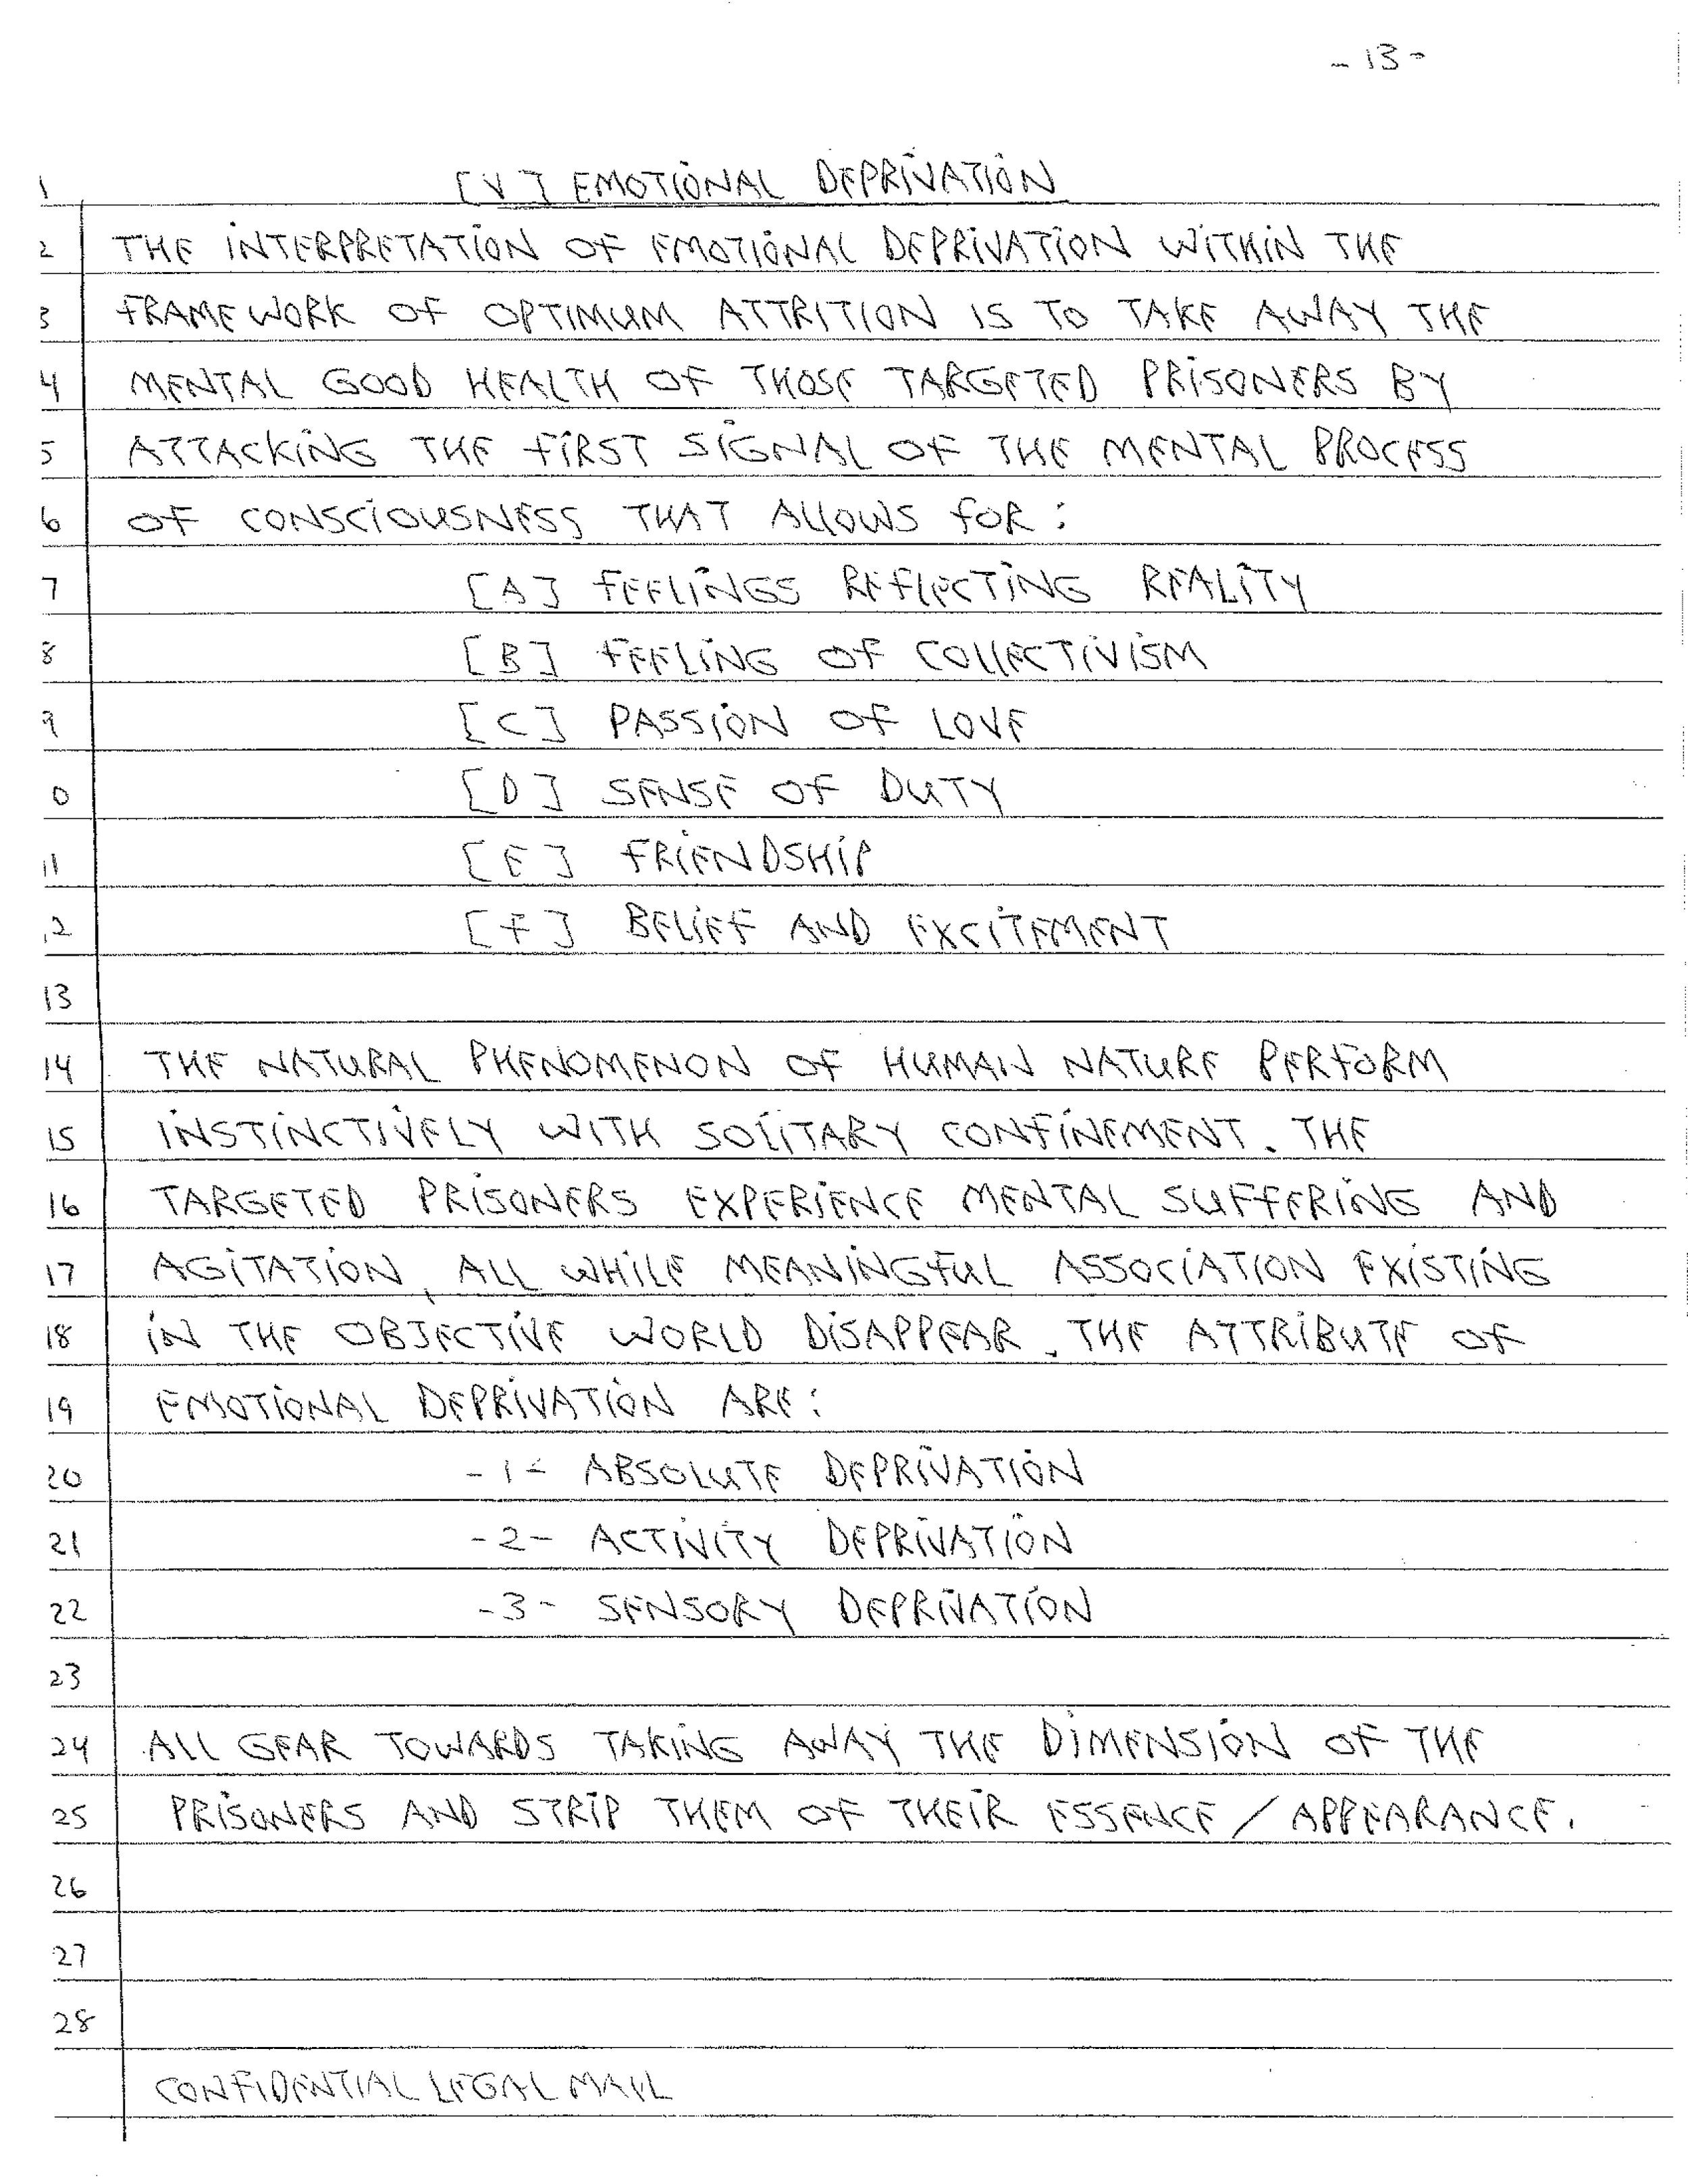 - 13 -
1 [V] EMOTIONAL DEPRIVATION
2 THE INTERPRETATION OF EMOTIONAL DEPRIVATION WITHIN THE
3 FRAMEWORK OF OPTIMUM ATTRITION IS TO TAKE AWAY THE
4 MENTAL GOOD HEALTH OF THOSE TARGETED PRISONERS BY
5 ATTACKING THE FIRST SIGNAL OF THE MENTAL PROCESS
6 OF CONSCIOUSNESS THAT ALLOWS FOR:
7 [A] FEELINGS REFLECTING REALITY
8 [B] FEELING OF COLLECTIVISM
9 [C] PASSION OF LOVE
0 [D] SENSE OF DUTY
11 [E] FRIENDSHIP
12 [F] BELIEF AND EXCITEMENT
13
14 THE NATURAL PHENOMENON OF HUMAN NATURE PERFORM
15 INSTINCTIVELY WITH SOLITARY CONFINEMENT. THE
16 TARGETED PRISONERS EXPERIENCE MENTAL SUFFERING AND
17 AGITATION, ALL WHILE MEANINGFUL ASSOCIATION EXISTING
18 IN THE OBJECTIVE WORLD DISAPPEAR. THE ATTRIBUTE OF
19 EMOTIONAL DEPRIVATION ARE:
20 -1- ABSOLUTE DEPRIVATION
21 -2- ACTIVITY DEPRIVATION
22 -3- SENSORY DEPRIVATION
23
24 ALL GEAR TOWARDS TAKING AWAY THE DIMENSION OF THE
25 PRISONERS AND STRIP THEM OF THEIR ESSENCE / APPEARANCE.
26
27
28
CONFIDENTIAL LEGAL MAIL